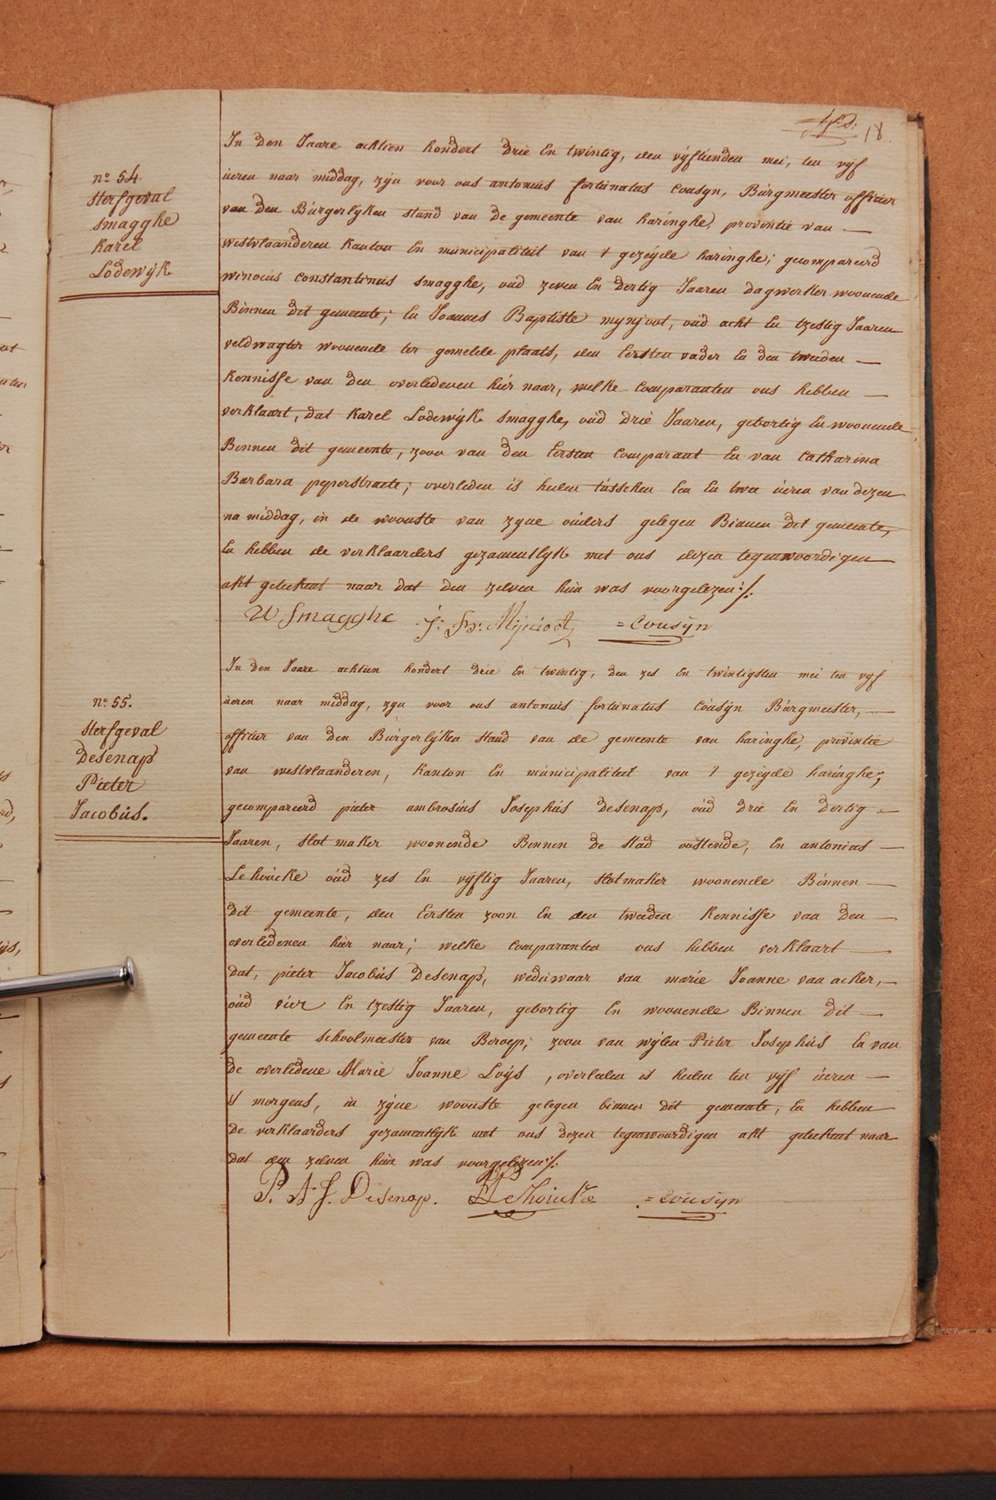 18.
nº 54.
Sterfgeval
Smagghe
Karel
Lodewijk
In den Jaare achtien hondert drie En twintig, den vijftienden mei, ten vijf
üeren naar middag, zijn voor ons antonius fortùnatus Coúsyn, Bùrgmeester officier
van den Bùrgerlijken stand van de gemeente van haringhe, provintie van —
westvlaanderen kanton En mùnicipaliteit van 't gezeijde haringhe; gecompareerd
winocùs Constantinùs Smagghe, oùd zeven En dertig Jaaren dagwerker woonende
Binnen dit gemeente; En Joannes Baptiste mynjoot, oùd acht En tzestig Jaaren
veldwagter woonende ter gemelde plaats, den Eersten vader En den tweeden —
Kennisse van den overledenen hier naar, welke Comparanten ons hebben —
verklaart, dat Karel Lodewijk Smagghe, oùd drie Jaaren, gebortig En woonende
Binnen dit gemeente, zoon van den Eersten Comparant En van Catharina
Barbara peperstraete; overleden is heden tùsschen Een En twee ùeren van dezen
na middag, in de woonste van zyne oùders gelegen Binnen dit gemeente,
En hebben de verklaarders gezamentlyk met ons dezen tegenwoordigen
akt geteekent naar dat den zelven hùn was voorgelezen ./.
W Smagghe J: Bs: Mijnioot = Coùsÿn
nº 55.
Sterfgeval
Desenap
Pieter
Jacobùs.
In den Jaare achtien hondert drie En twintig, den zes En twintigsten mei ten vijf
ùeren naar middag, zyn voor ons antonius fortùnatus Coùsÿn Bùrgmeester, —
officier van den Bùrgerlijken Stand van de gemeente van haringhe, provintie
van westvlaanderen, Kanton En mùnicipaliteit van 't gezeijde haringhe;
gecompareerd pieter ambrosius Josephùs Desenap, oùd drie En dertig —
Jaaren, Slotmaker woonende Binnen de Stad oostende, En antonius —
Lehoùcke oùd zes En vijftig Jaaren, Slotmaker woonende Binnen —
dit gemeente, den Eersten zoon En den tweeden Kennisse van den —
overledenen hier naar; welke Comparanten ons hebben verklaart —
dat, pieter Jacobùs Desenap, wedùwaar van marie Joanne van acker, —
oùd vier En tzestig Jaaren, gebortig En woonende Binnen dit —
gemeente Schoolmeester van Beroep; zoon van wijlen Pieter Josephùs En van
de overledene Marie Joanne Loÿs, overleden is heden ten vijf ùeren —
's morgens, in zijne woonste gelegen binnen dit gemeente, En hebben
de verklaarders gezamentlyk met ons dezen tegenwoordigen akt geteekent naar
dat den zelven hùn was voorgelezen ./.
P. A J. Desenap. Lehoùcke = Coùsÿn